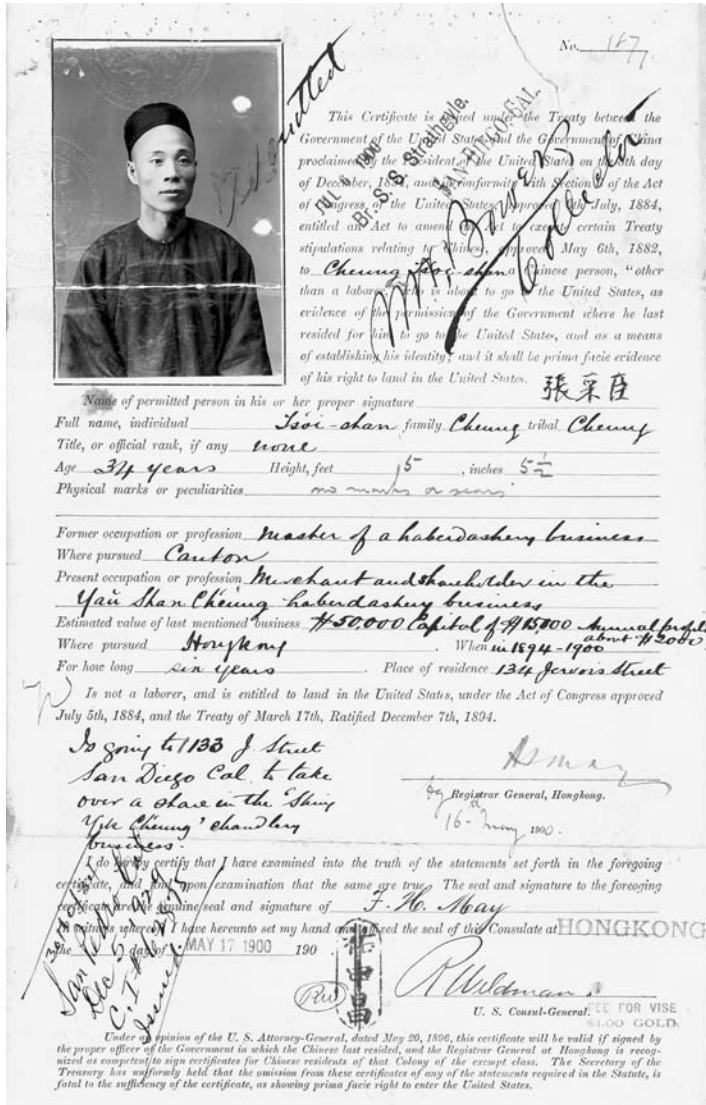 No. 187
Admitted
JUL 6 1900
Br. S. S. Strathgyle.
SAN DIEGO, CAL.
W. W. Bowers
Collector
This Certificate is issued under the Treaty between the
Government of the United States and the Government of China
proclaimed by the President of the United States on the 8th day
of December, 1894, and in conformity with Section 6 of the Act
of Congress of the United States, approved 5th July, 1884,
entitled an Act to amend an Act to execute certain Treaty
stipulations relating to Chinese, approved May 6th, 1882,
to Cheung Tsoi-shan a Chinese person, "other
than a laborer," who is about to go to the United States, as
evidence of the permission of the Government where he last
resided for him to go to the United States, and as a means
of establishing his identity; and it shall be prima facie evidence
of his right to land in the United States.
Name of permitted person in his or her proper signature 張采
Full name, individual Tsoi-shan family Cheung tribal Cheung
Title, or official rank, if any none
Age 34 years Height, feet 5, inches 5½
Physical marks or peculiarities no marks or scars
Former occupation or profession Master of a haberdashery business
Where pursued Canton
Present occupation or profession Merchant and shareholder in the
Yau Shan Cheung haberdashery business
Estimated value of last mentioned business $50,000 Capital of $15,000 Annual profit about $2000
Where pursued Hongkong. When in 1894-1900
For how long six years Place of residence 134 Jervois Street
Is not a laborer, and is entitled to land in the United States, under the Act of Congress approved
July 5th, 1884, and the Treaty of March 17th, Ratified December 7th, 1894.
Is going to 1133 J. Street
San Diego Cal. to take
over a share in the "Shing
Yik Cheung" chandlery
business.
Registrar General, Hongkong.
16 May 1900.
I do hereby certify that I have examined into the truth of the statements set forth in the foregoing
certificate, and find upon examination that the same are true. The seal and signature to the foregoing
certificate are the genuine seal and signature of F. H. May
In witness whereof I have hereunto set my hand and affixed the seal of this Consulate at HONGKONG
the day of MAY 17 1900 190 .
R Wildman
U. S. Consul-General.
FEE FOR VISE
$1.00 GOLD.
RW
San Pedro Cal
Dec 5 1929
C.I. #62855
Issued
Under an opinion of the U. S. Attorney-General, dated May 20, 1896, this certificate will be valid if signed by
the proper officer of the Government in which the Chinese last resided, and the Registrar General at Hongkong is recog-
nized as competent to sign certificates for Chinese residents of that Colony of the exempt class. The Secretary of the
Treasury has uniformly held that the omission from these certificates of any of the statements required in the Statute, is
fatal to the sufficiency of the certificate, as showing prima facie right to enter the United States.